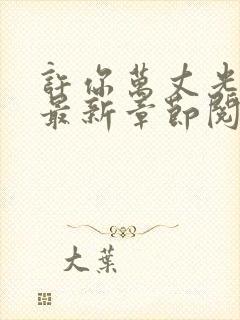 許你萬丈光
最新章節閱
大葉